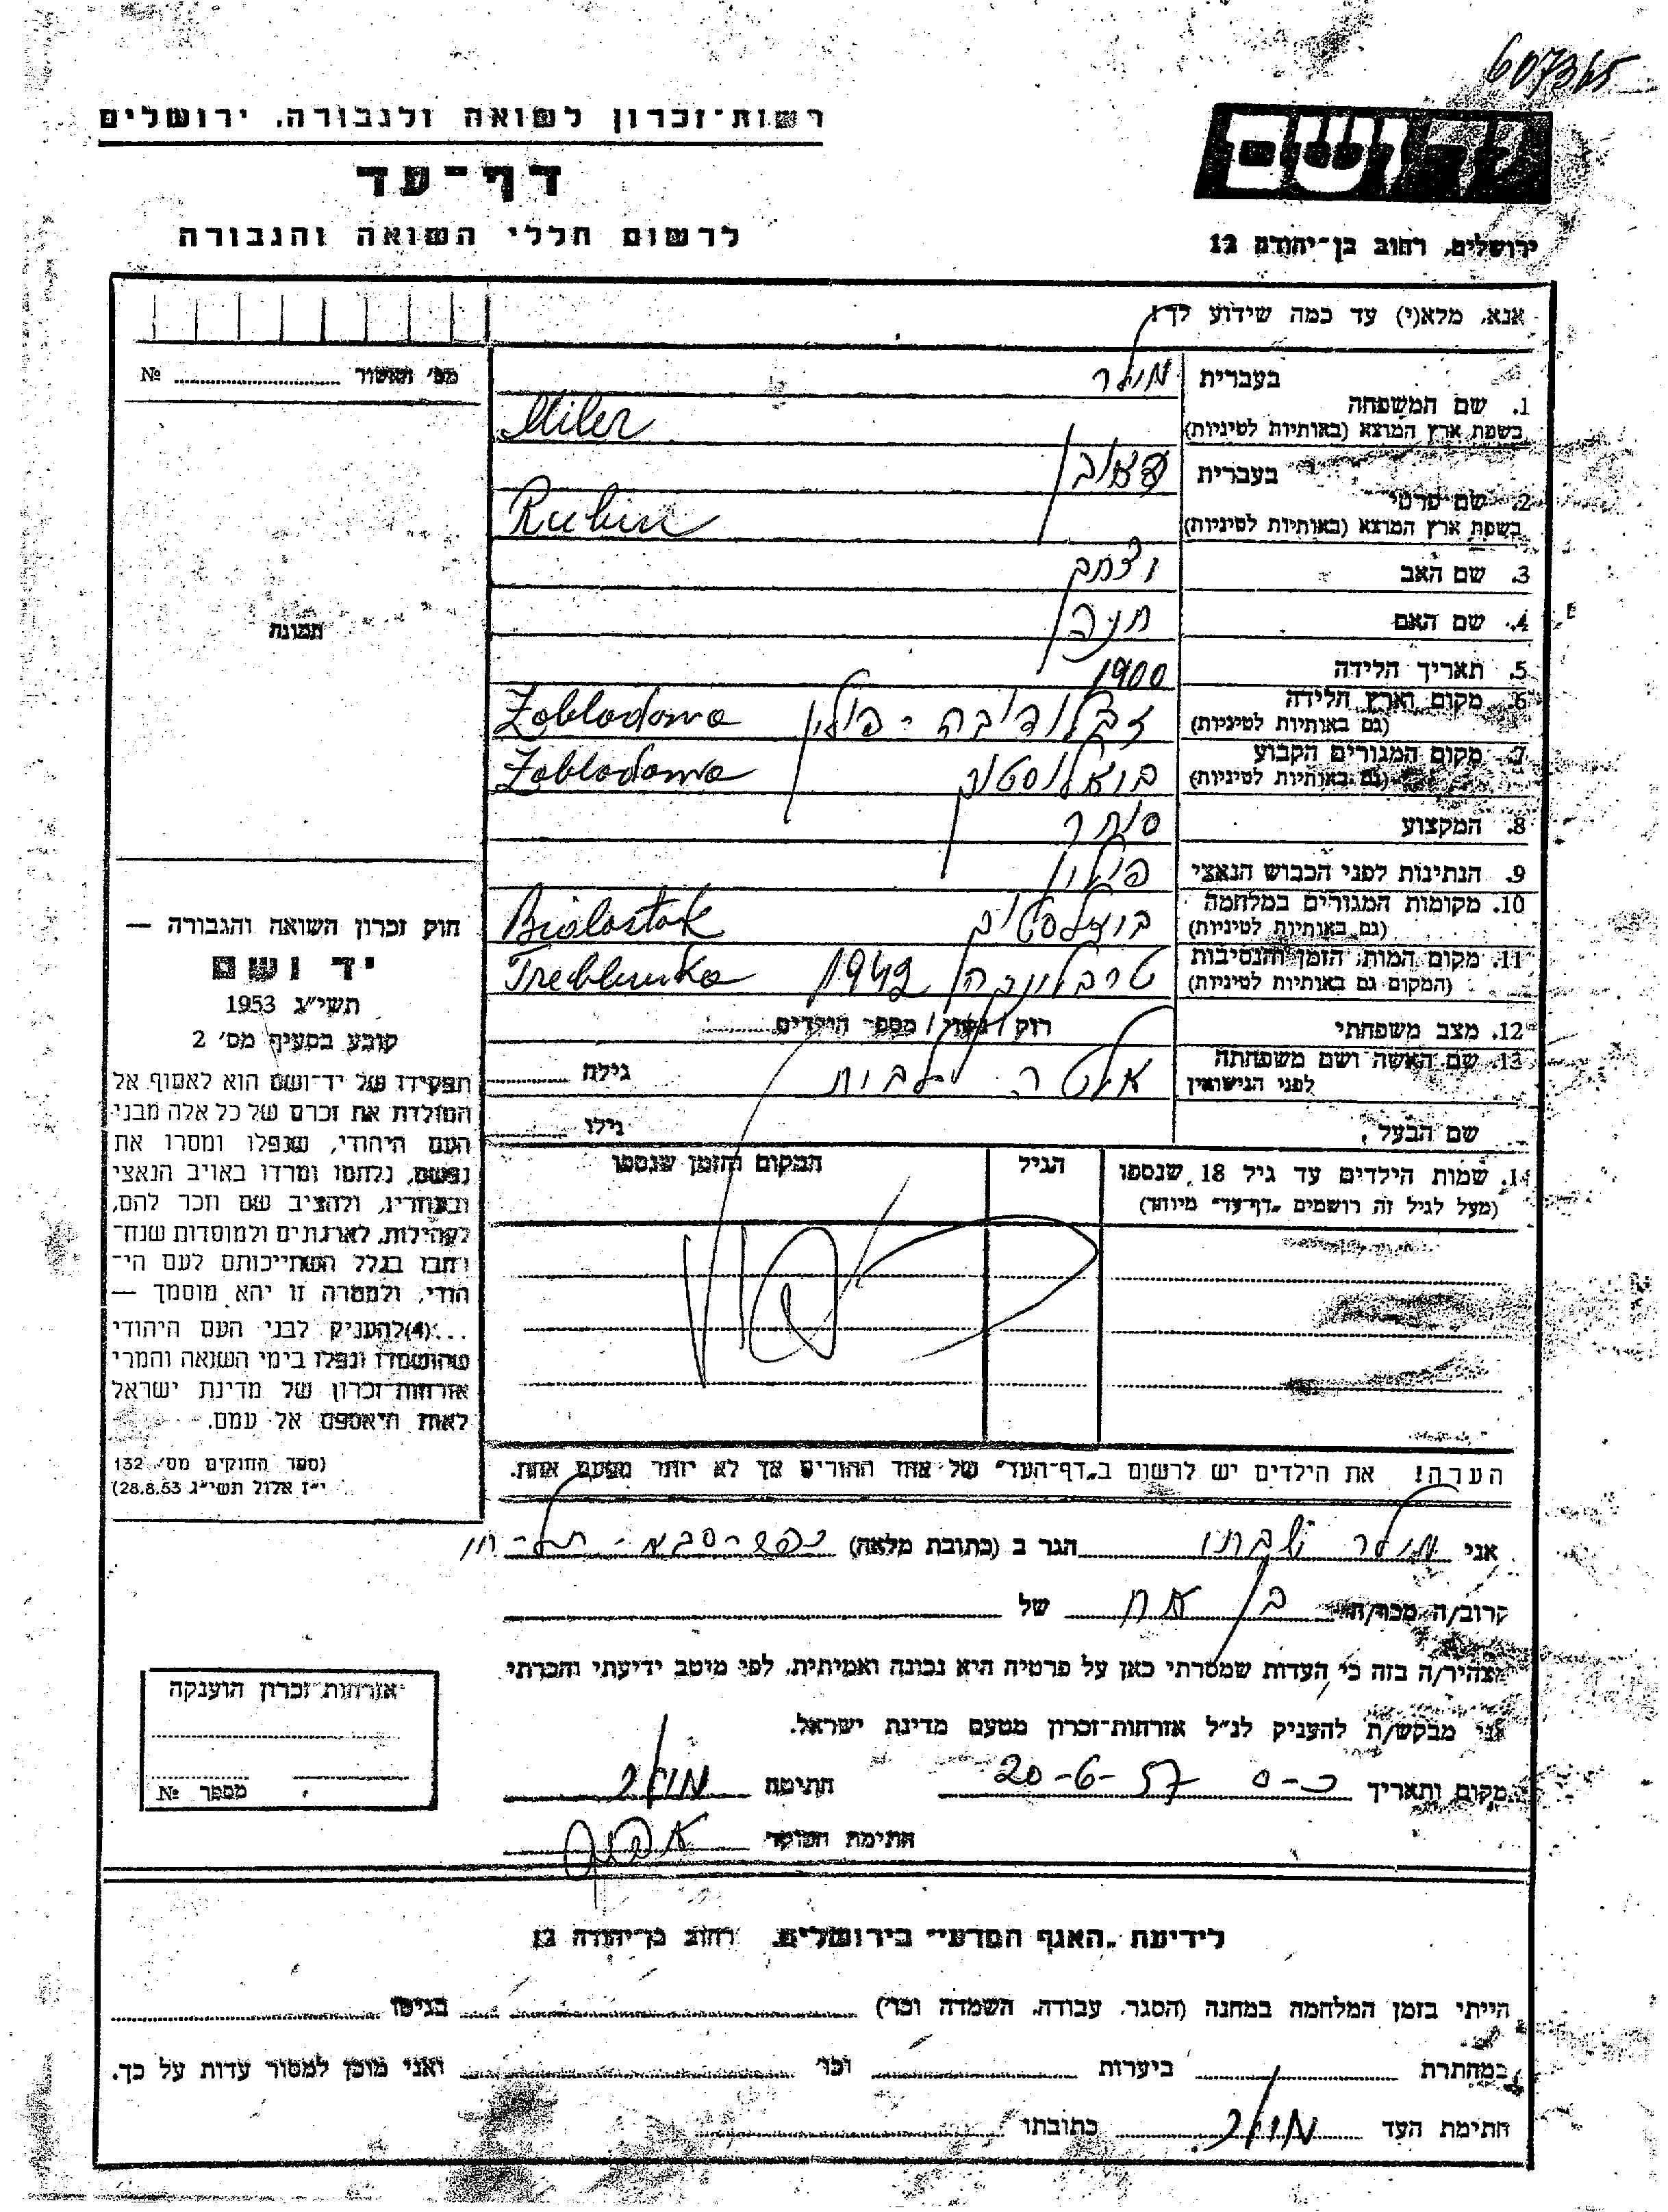 607365
רשות־זכרון לשואה ולגבורה, ירושלים
דף־עד
לרשום חללי השואה והגבורה
יד ושם
ירושלים, רחוב בן־יהודה 12
אנא, מלא(י) עד כמה שידוע לך:
מס' האשור № ............
1. שם המשפחה
בעברית מילר
בשפת ארץ המוצא (באותיות לטיניות) Miler
2. שם פרטי
בעברית
בשפת ארץ המוצא (באותיות לטיניות) Rubin
3. שם האב יצחק
4. שם האם חנה
5. תאריך הלידה 1900
6. מקום וארץ הלידה
(גם באותיות לטיניות) זבלודובה - פולין Zabludowa
7. מקום המגורים הקבוע
(גם באותיות לטיניות) ביאליסטוק Zabludowa
8. המקצוע סוחר
9. הנתינות לפני הכבוש הנאצי פולין
10. מקומות המגורים במלחמה
(גם באותיות לטיניות) ביאליסטוק Bialostok
11. מקום המות, הזמן והנסיבות
(המקום גם באותיות לטיניות) טרבלינקה 1942 Treblinka
12. מצב משפחתי רוק / נשוי / מספר הילדים ............
13. שם האשה ושם משפחתה
לפני הנישואין גילה ............
שם הבעל גילו ............
14. שמות הילדים עד גיל 18 שנספו
(מעל לגיל זה רושמים "דף־עד" מיוחד)
הגיל
המקום והזמן שנספו
תמונה
חוק זכרון השואה והגבורה —
יד ושם
תשי״ג 1953
קובע בסעיף מס' 2
תפקידו של יד־ושם הוא לאסוף אל
המולדת את זכרם של כל אלה מבני
העם היהודי, שנפלו ומסרו את
נפשם, נלחמו ומרדו באויב הנאצי
ובעוזריו, ולהציב שם וזכר להם,
לקהילות, לארגונים ולמוסדות שנח־
רבו בגלל השתייכותם לעם הי־
הודי, ולמטרה זו יהא מוסמך —
...(4) להעניק לבני העם היהודי
שהושמדו ונפלו בימי השואה והמרי
אזרחות־זכרון של מדינת ישראל
לאות היאספם אל עמם.
(ספר החוקים מס' 132
י״ז אלול תשי״ג 28.8.53)
הערה! את הילדים יש לרשום ב"דף־העד" של אחד ההורים אך לא יותר מפעם אחת.
אני מילר שבתי הגר ב (כתובת מלאה) כפר-סבא - תל-חי
קרוב/ה מכר/ה בן אח של ............
מצהיר/ה בזה כי העדות שמסרתי כאן על פרטיה היא נכונה ואמיתית, לפי מיטב ידיעתי והכרתי
אני מבקש/ת להעניק לנ״ל אזרחות־זכרון מטעם מדינת ישראל.
מקום ותאריך כ-ס 20-6-57 חתימה מילר
חתימת הפוקד
אזרחות־זכרון הוענקה
מספר №
לידיעת "האגף המדעי" בירושלים, רחוב בן־יהודה 12
הייתי בזמן המלחמה במחנה (הסגר, עבודה, השמדה וכו') ............ בגיטו ............
במחתרת ............ ביערות ............ וכו' ............ ואני מוכן למסור עדות על כך.
חתימת העד מילר כתובתו ............